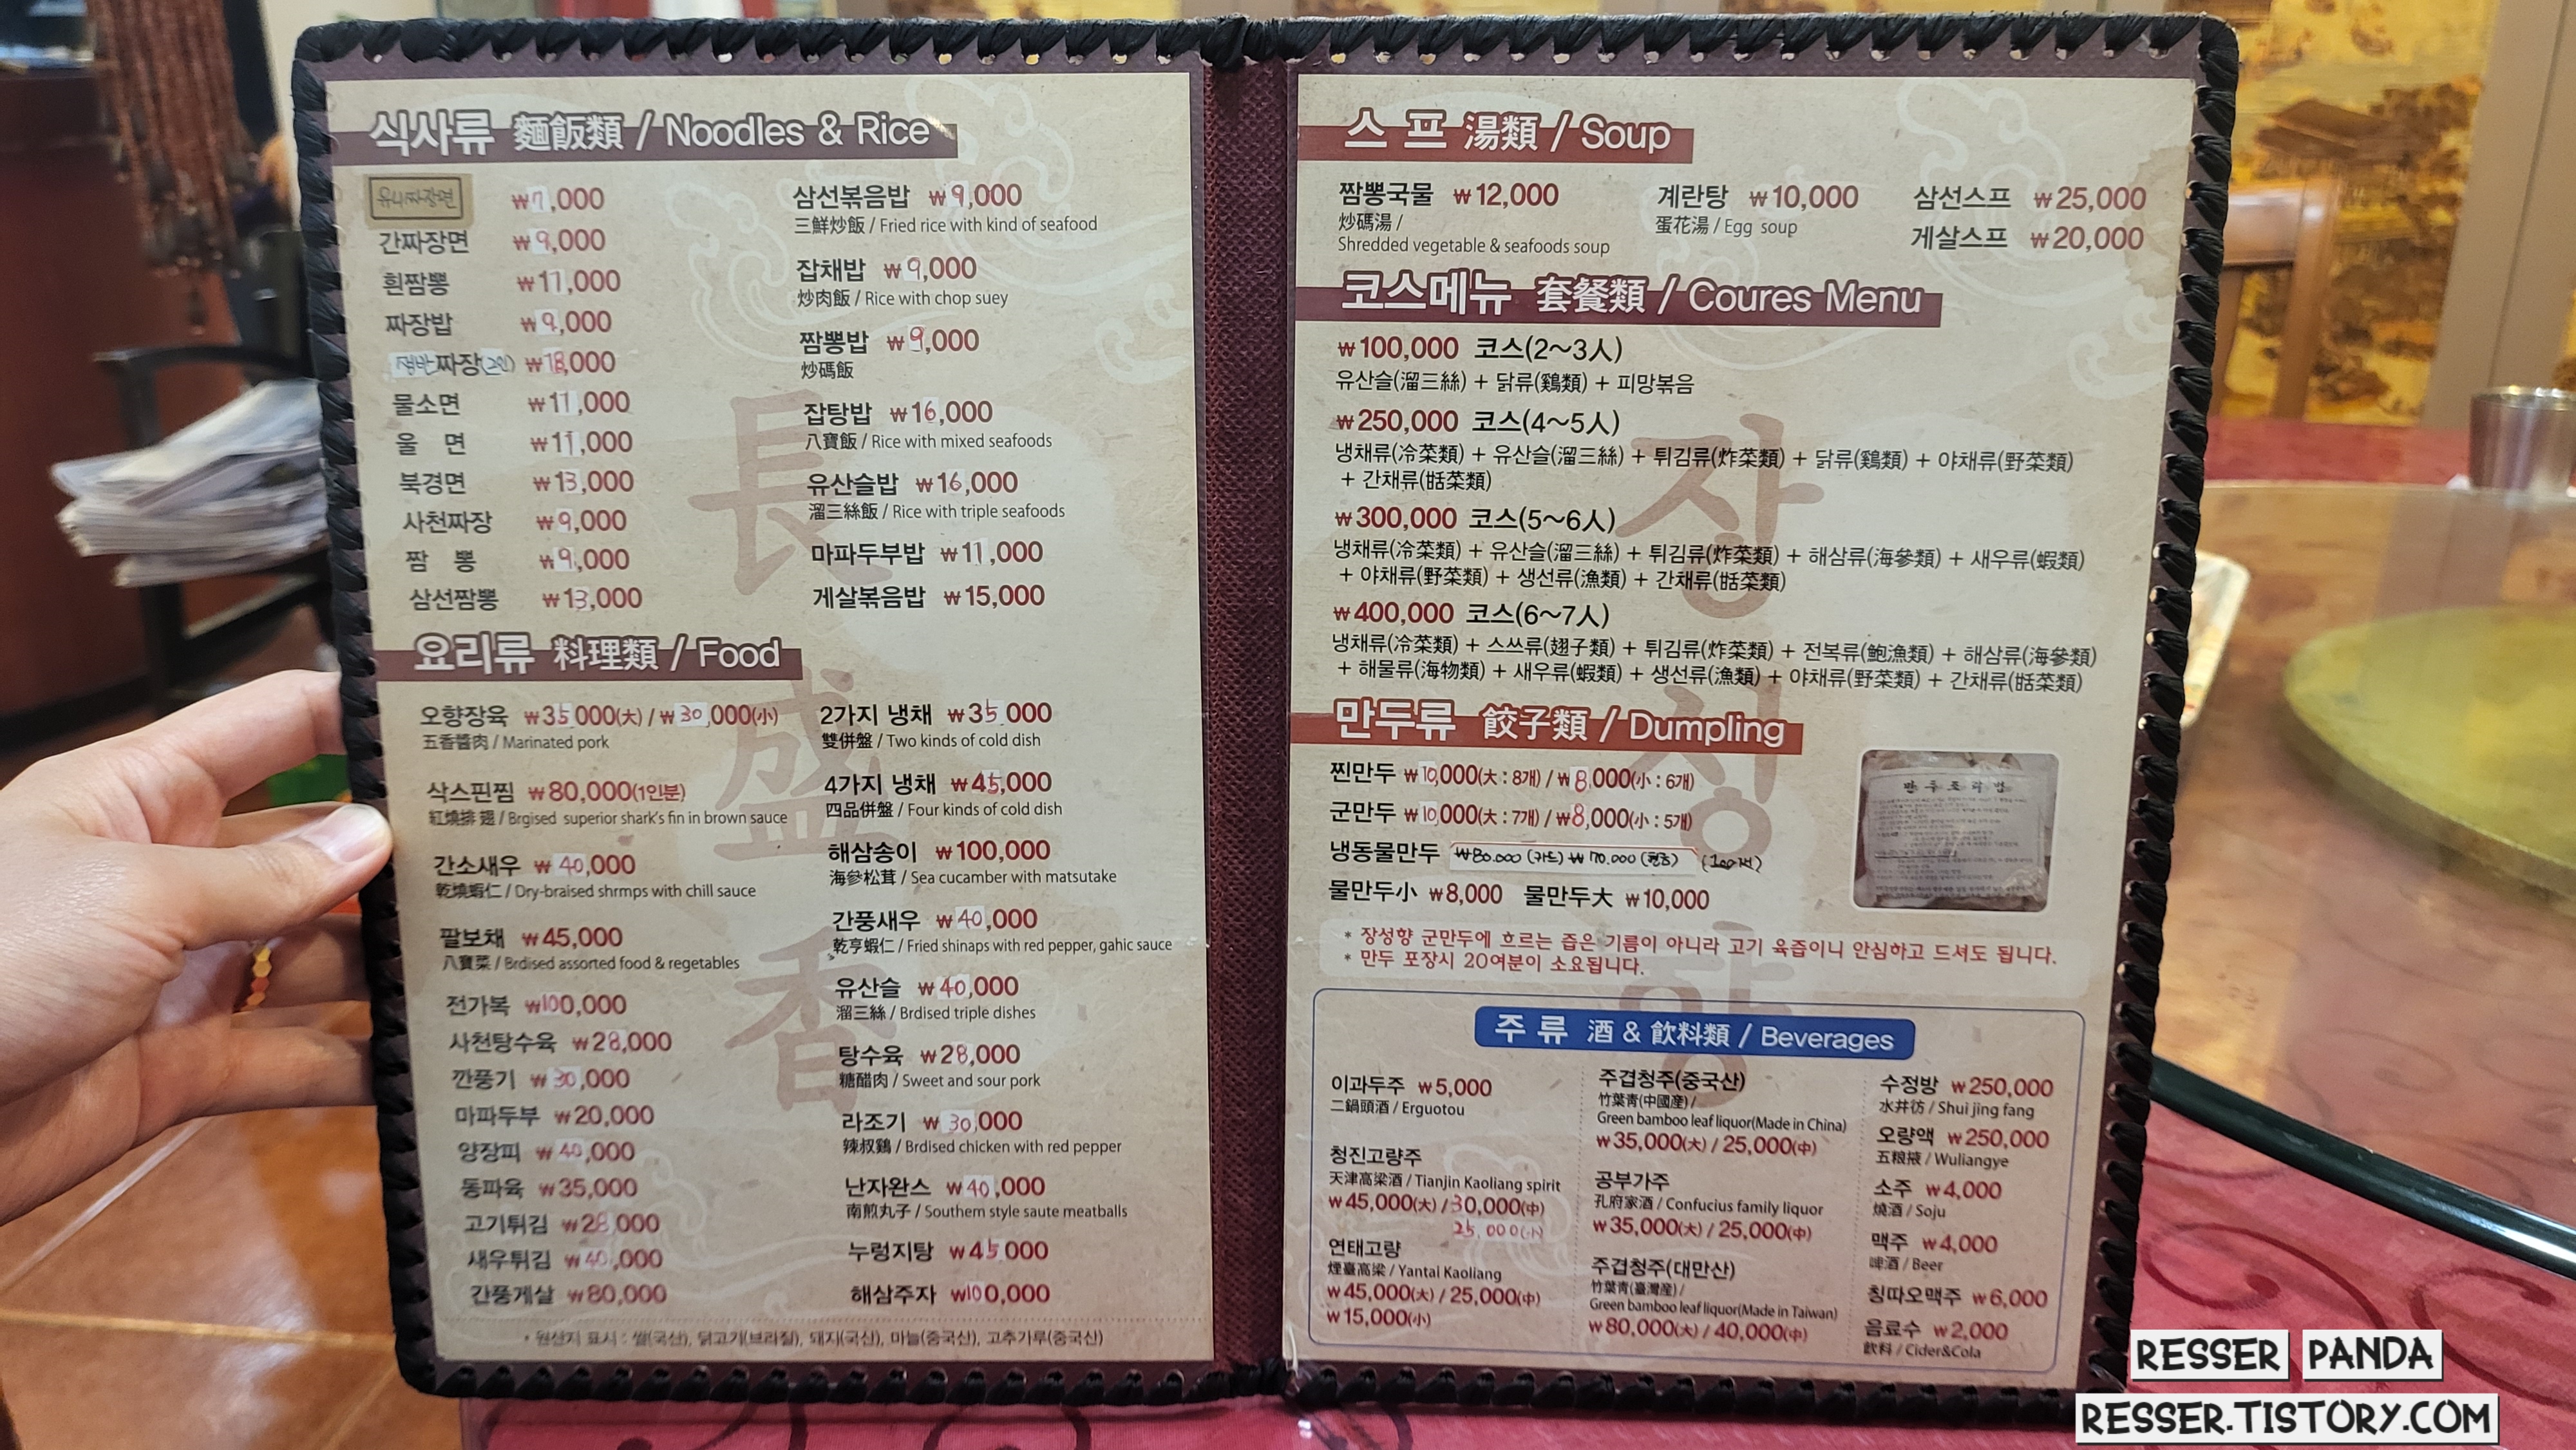 식사류 麵飯類 / Noodles & Rice
유니짜장면 ₩7,000
간짜장면 ₩9,000
흰짬뽕 ₩11,000
짜장밥 ₩9,000
쟁반짜장(2인) ₩18,000
물소면 ₩11,000
울 면 ₩11,000
북경면 ₩13,000
사천짜장 ₩9,000
짬 뽕 ₩9,000
삼선짬뽕 ₩13,000
삼선볶음밥 ₩9,000
三鮮炒飯 / Fried rice with kind of seafood
잡채밥 ₩9,000
炒肉飯 / Rice with chop suey
짬뽕밥 ₩9,000
炒碼飯
잡탕밥 ₩16,000
八寶飯 / Rice with mixed seafoods
유산슬밥 ₩16,000
溜三絲飯 / Rice with triple seafoods
마파두부밥 ₩11,000
게살볶음밥 ₩15,000
요리류 料理類 / Food
오향장육 ₩35,000(大) / ₩30,000(小)
五香醬肉 / Marinated pork
삭스핀찜 ₩80,000(1인분)
紅燒排翅 / Brgised superior shark's fin in brown sauce
간소새우 ₩40,000
乾燒蝦仁 / Dry-braised shrmps with chill sauce
팔보채 ₩45,000
八寶菜 / Brdised assorted food & regetables
전가복 ₩100,000
사천탕수육 ₩28,000
깐풍기 ₩30,000
마파두부 ₩20,000
양장피 ₩40,000
동파육 ₩35,000
고기튀김 ₩28,000
새우튀김 ₩40,000
간풍게살 ₩80,000
2가지 냉채 ₩35,000
雙併盤 / Two kinds of cold dish
4가지 냉채 ₩45,000
四品併盤 / Four kinds of cold dish
해삼송이 ₩100,000
海參松茸 / Sea cucamber with matsutake
간풍새우 ₩40,000
乾亨蝦仁 / Fried shinaps with red pepper, gahic sauce
유산슬 ₩40,000
溜三絲 / Brdised triple dishes
탕수육 ₩28,000
糖醋肉 / Sweet and sour pork
라조기 ₩30,000
辣叔鷄 / Brdised chicken with red pepper
난자완스 ₩40,000
南煎丸子 / Southern style saute meatballs
누렁지탕 ₩45,000
해삼주자 ₩100,000
* 원산지 표시 : 쌀(국산), 닭고기(브라질), 돼지(국산), 마늘(중국산), 고추가루(중국산)
長盛香
스 프 湯類 / Soup
짬뽕국물 ₩12,000
炒碼湯 /
Shredded vegetable & seafoods soup
계란탕 ₩10,000
蛋花湯 / Egg soup
삼선스프 ₩25,000
게살스프 ₩20,000
코스메뉴 套餐類 / Coures Menu
₩100,000 코스(2~3人)
유산슬(溜三絲) + 닭류(鷄類) + 피망볶음
₩250,000 코스(4~5人)
냉채류(冷菜類) + 유산슬(溜三絲) + 튀김류(炸菜類) + 닭류(鷄類) + 야채류(野菜類)
+ 간채류(甛菜類)
₩300,000 코스(5~6人)
냉채류(冷菜類) + 유산슬(溜三絲) + 튀김류(炸菜類) + 해삼류(海參類) + 새우류(蝦類)
+ 야채류(野菜類) + 생선류(漁類) + 간채류(甛菜類)
₩400,000 코스(6~7人)
냉채류(冷菜類) + 스쓰류(翅子類) + 튀김류(炸菜類) + 전복류(鮑漁類) + 해삼류(海參類)
+ 해물류(海物類) + 새우류(蝦類) + 생선류(漁類) + 야채류(野菜類) + 간채류(甛菜類)
장성향
만두류 餃子類 / Dumpling
찐만두 ₩10,000(大 : 8개) / ₩8,000(小 : 6개)
군만두 ₩10,000(大 : 7개) / ₩8,000(小 : 5개)
냉동물만두 ₩80.000 (카드) ₩70.000 (현금) (100개)
물만두小 ₩8,000 물만두大 ₩10,000
만두조리법
* 장성향 군만두에 흐르는 즙은 기름이 아니라 고기 육즙이니 안심하고 드셔도 됩니다.
* 만두 포장시 20여분이 소요됩니다.
주 류 酒 & 飮料類 / Beverages
이과두주 ₩5,000
二鍋頭酒 / Erguotou
청진고량주
天津高梁酒 / Tianjin Kaoliang spirit
₩45,000(大) / 30,000(中)
25,000(小)
연태고량
煙臺高梁 / Yantai Kaoliang
₩45,000(大) / 25,000(中)
₩15,000(小)
주겹청주(중국산)
竹葉靑(中國産) /
Green bamboo leaf liquor(Made in China)
₩35,000(大) / 25,000(中)
공부가주
孔府家酒 / Confucius family liquor
₩35,000(大) / 25,000(中)
주겹청주(대만산)
竹葉靑(臺灣産) /
Green bamboo leaf liquor(Made in Taiwan)
₩80,000(大) / 40,000(中)
수정방 ₩250,000
水井彷 / Shui jing fang
오량액 ₩250,000
五粮掖 / Wuliangye
소주 ₩4,000
燒酒 / Soju
맥주 ₩4,000
啤酒 / Beer
칭따오맥주 ₩6,000
음료수 ₩2,000
飮料 / Cider&Cola
RESSER PANDA
RESSER.TISTORY.COM